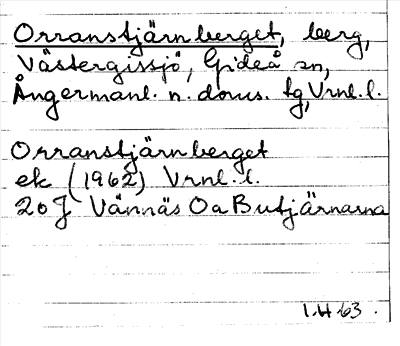 Orranstjärnberget, berg,
Västergissjö, Gideå sn,
Ångermanl. n. doms. tg, Vrnl. l.
Orranstjärnberget
ek (1962) Vrnl. l.
20J Vännäs Oa Butjärnarna
I.H 63.